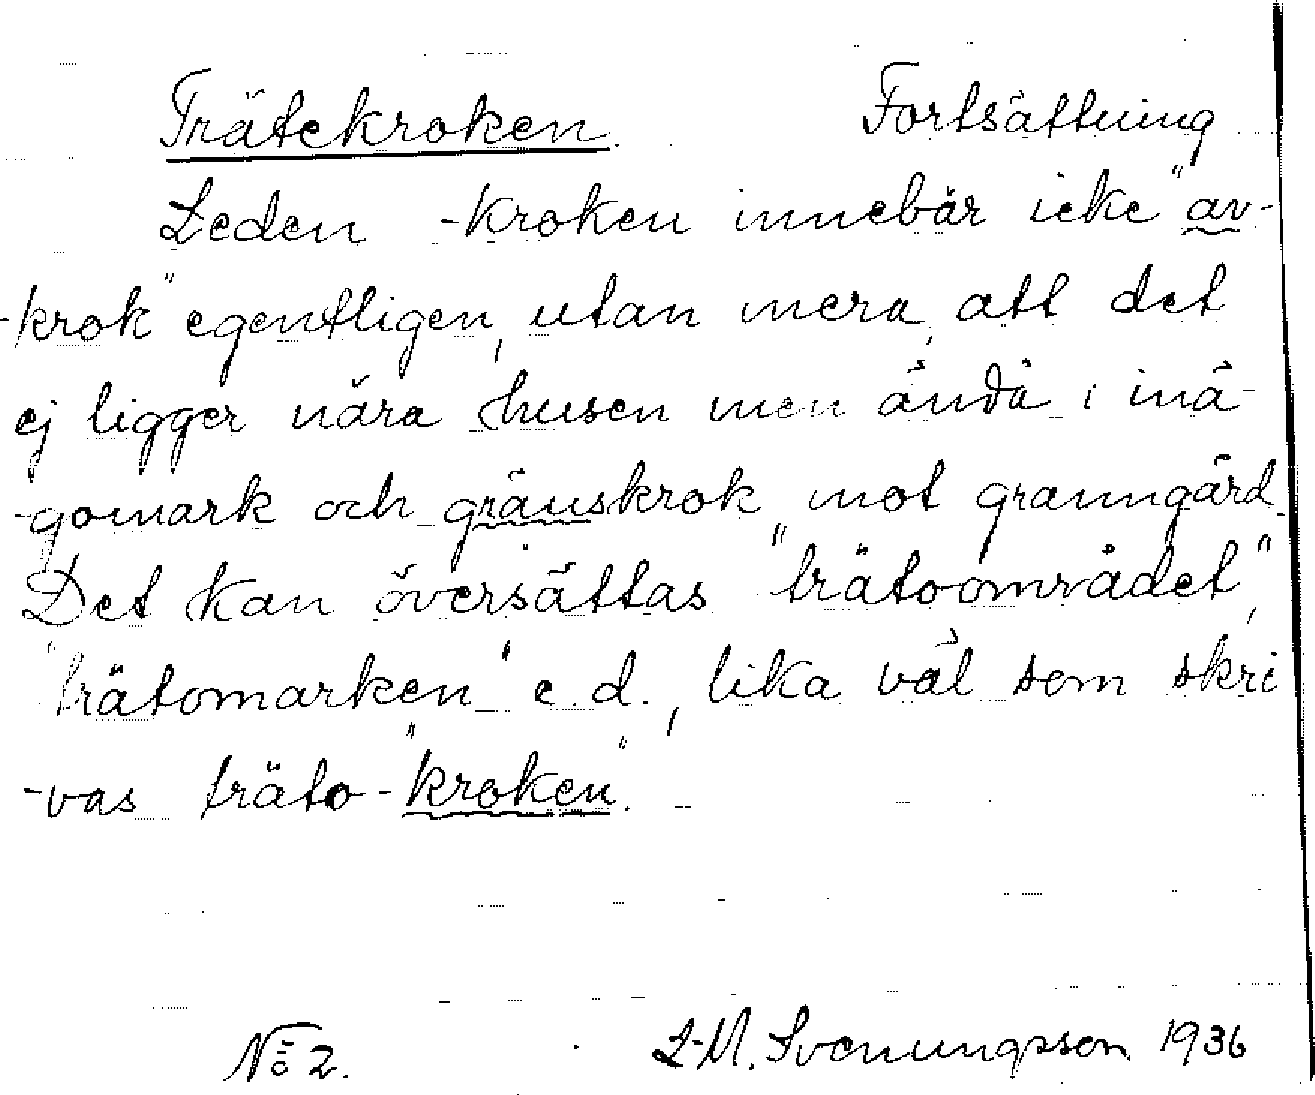 Trätekroken. Fortsättning
Leden -kroken innebär icke "av-
-krok" egentligen, utan mera, att det
ej ligger nära husen men ändå i inä-
-gomark och gränskrok mot granngård.
Det kan översättas "trätoområdet",
"trätomarken" e.d., lika väl som skri
-vas träto-"kroken".
No 2. L-M. Svenungsson 1936